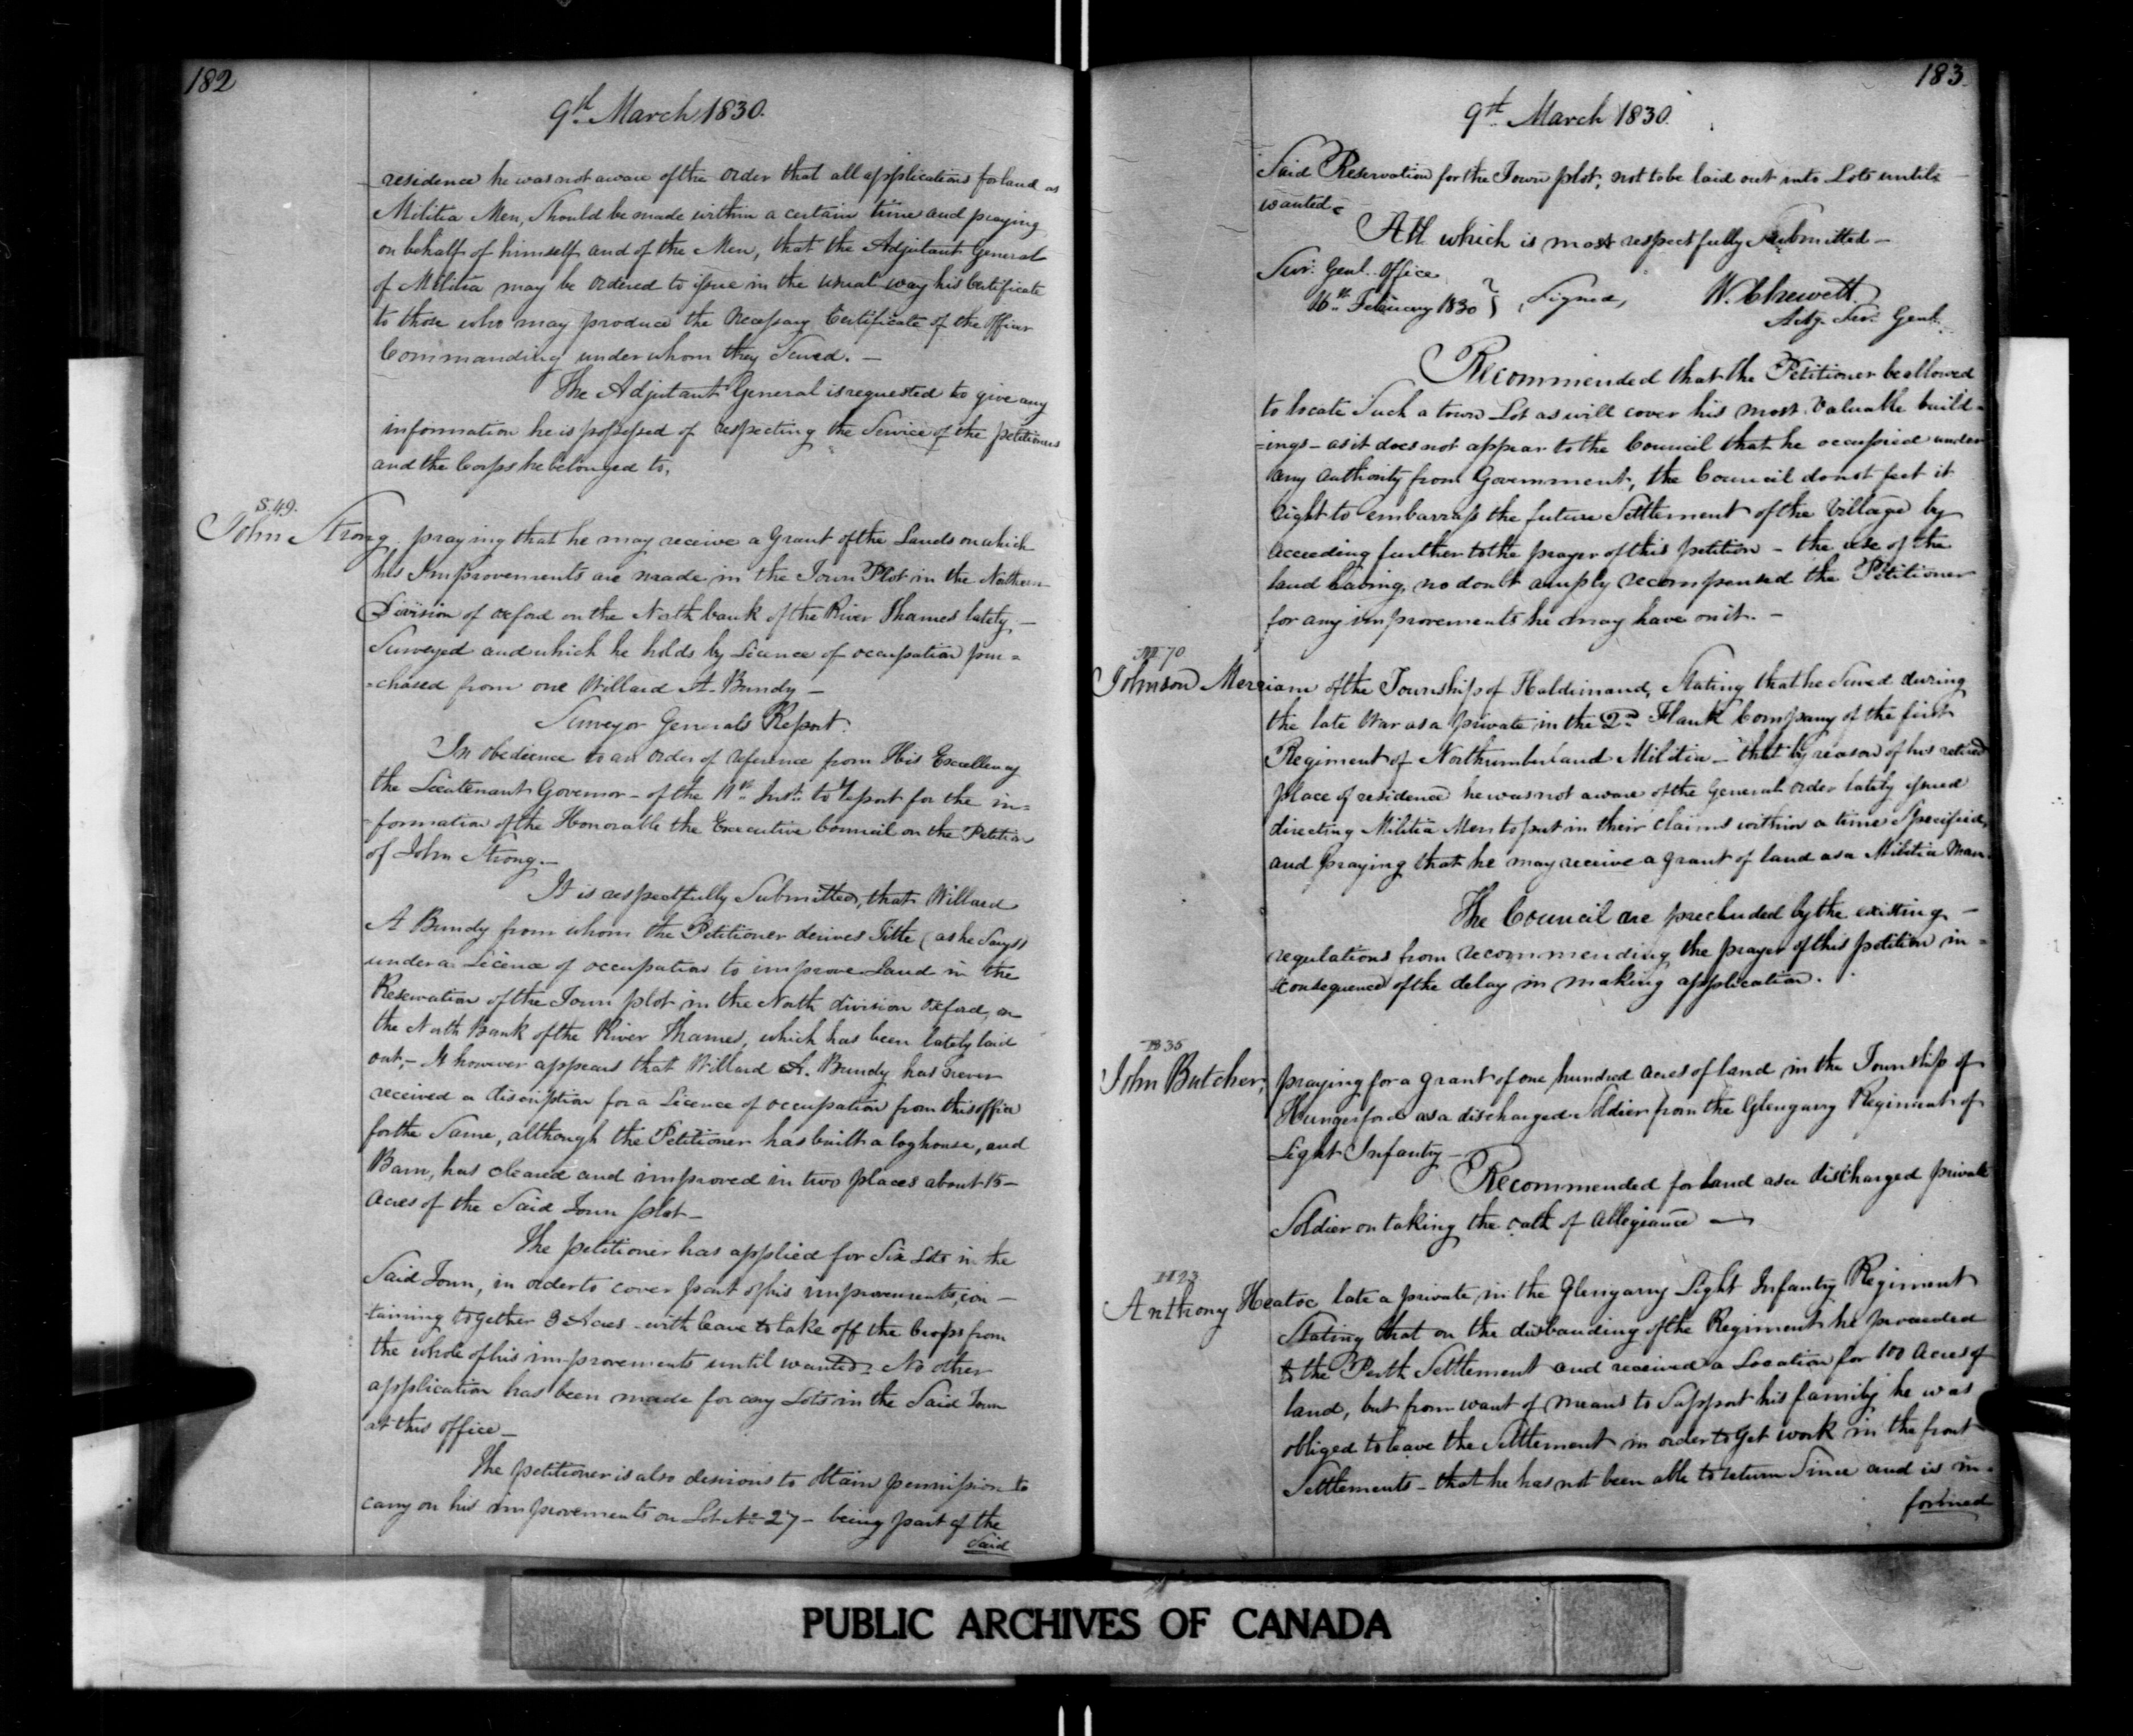 182
9th March 1830.
residence he was not aware of the order that all applications for land as
Militia Men, should be made within a certain time and praying
on behalf of himself and of the Men, that the Adjutant General
of Militia may be ordered to issue in the usual way his Certificate
to those who may produce the Necessary Certificate of the Officer
Commanding under whom they Served. —
The Adjutant General is requested to give any
information he is possessed of respecting the Service of the petitioners
and the Corps he belonged to,
S. 49.
John Strong praying that he may receive a Grant of the Lands on which
his Improvements are made in the Town Plot in the Northern
Division of Oxford on the North bank of the River Thames lately —
Surveyed and which he holds by Licence of occupation pur =
= chased from one Willard A. Bundy —
Surveyor Generals Report.
In obedience to an order of reference from His Excellency
the Lieutenant Governor — of the 11th Inst. to report for the in=
=formation of the Honorable the Executive Council on the Petition
of John Strong. —
It is respectfully Submitted, that Willard
A Bundy from whom the Petitioner derives Title (as he Says)
under a Licence of occupation to improve Land in the
Reservation of the Town plot in the North division Oxford, on
the North Bank of the River Thames, which has been lately laid
out, — It however appears that Willard A. Bundy has never
received a discription for a Licence of occupation from this office
for the Same, although the Petitioner has built a log house, and
Barn, has cleared and improved in two places about 15 —
Acres of the Said Town plot —
The petitioner has applied for Six Lots in the
Said Town, in order to cover part of his improvements, con —
-taining together 3 Acres — with leave to take off the Crops from
the whole of his improvements until wanted. No other
application has been made for any Lots in the Said Town
at this office —
The petitioner is also desirous to obtain permission to
carry on his improvements on Lot No. 27 — being part of the
Said
183
9th March 1830.
Said Reservation for the Town plot, not to be laid out into Lots until —
wanted.
All which is most respectfully Submitted —
Surr. Genl. Office
16th February 1830 } Signed, W. Chewett.
Actg. Surr. Genl.
Recommended that the Petitioner be allowed
to locate Such a town Lot as will cover his most Valuable build=
=ings — as it does not appear to the Council that he occupied under
any authority from Government, the Council do not feel it
right to embarrass the future Settlement of the Village by
acceeding further to the prayer of this petition — the use of the
land having, no doubt amply recompensed the Petitioner
for any improvements he may have on it. —
M 70
Johnson Merriam of the Township of Haldimand, Stating that he Served during
the late War as a private in the 2nd Flank Company of the first
Regiment of Northumberland Militia — that by reason of his retired
place of residence he was not aware of the General order lately issued
directing Militia Men to put in their claims within a time Specified,
and praying that he may receive a grant of land as a Militia Man.
The Council are precluded by the existing —
regulations from recommending the prayer of this petition in =
consequence of the delay in making application.
B 35
John Butcher, praying for a grant of one hundred acres of land in the Township of
Hungerford as a discharged Soldier from the Glengarry Regiment of
Light Infantry —
Recommended for land as a discharged private
Soldier on taking the oath of allegiance —
H 23
Anthony late a private in the Glengarry Light Infantry Regiment
Stating that on the disbanding of the Regiment he proceeded
to the Perth Settlement and received a Location for 100 Acres of
land, but from want of means to Support his family he was
obliged to leave the Settlement in order to get work in the front
Settlements — that he has not been able to return Since and is in=
formed
PUBLIC ARCHIVES OF CANADA